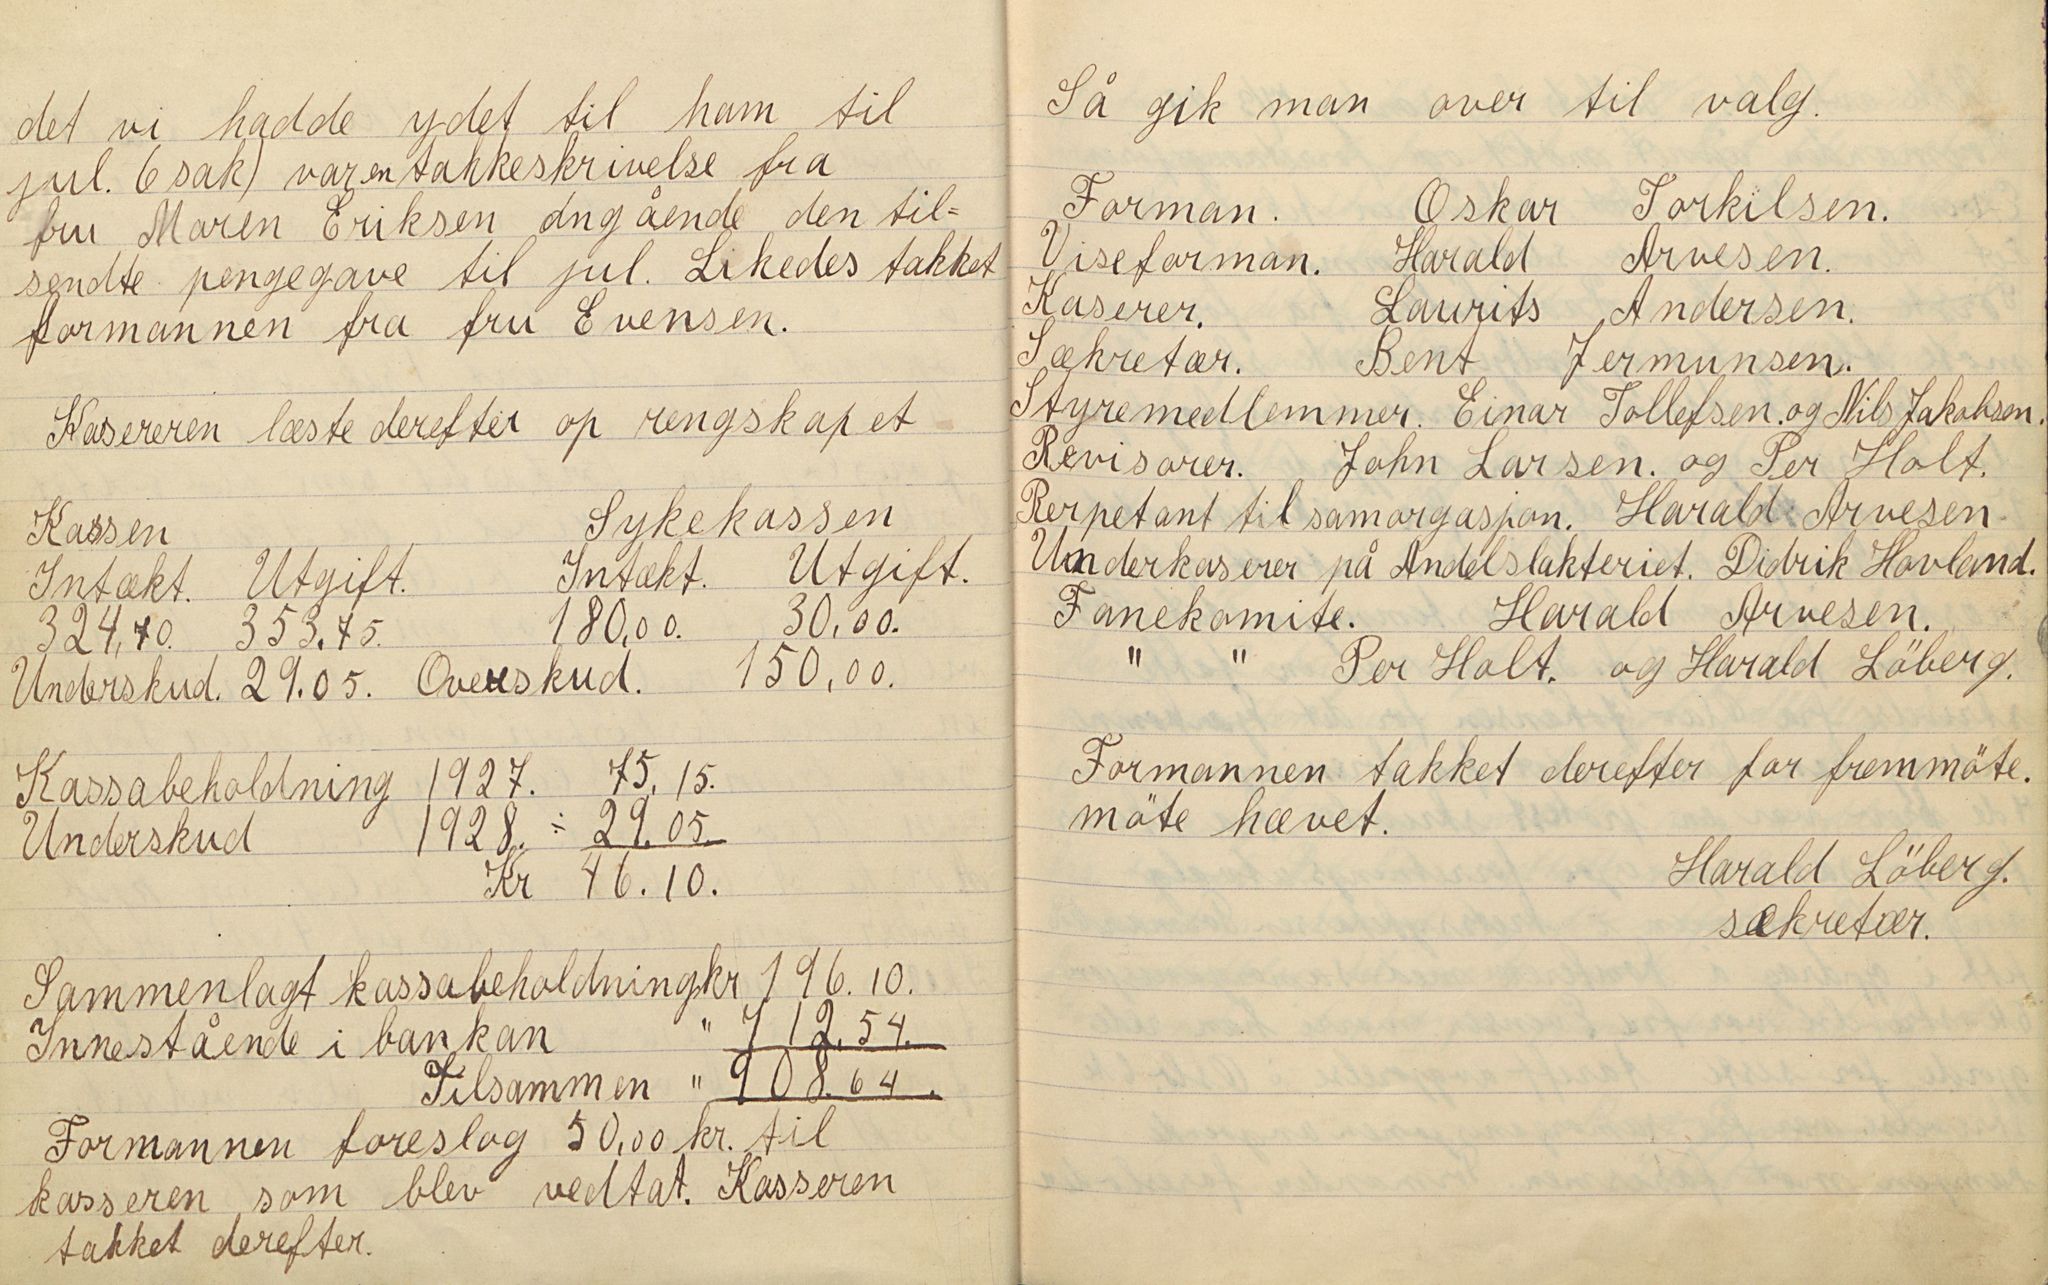 det vi hadde ydet til ham til
jul. 6 sak) var en takkeskrivelse fra
fru Maren Eriksen angående den til=
sendte pengegave til jul. Likedes takket
formannen fra fru Evensen.
Kasereren læste derefter op rengskapet
Kassen Sykekassen
Intækt. Utgift. Intækt. Utgift.
324,70. 353.75. 180,00. 30,00.
Underskud. 29.05. Overskud. 150,00.
Kassabeholdning 1927. 75,15.
Underskud 1928. ÷ 29.05.
Kr 46.10.
Sammenlagt kassabeholdning kr 196.10.
Innestående i bankan " 712,54.
Tilsammen " 908.64.
Formannen foreslog 50,00 kr. til
kasseren som blev vedtat. Kasseren
takket derefter.
Så gik man over til valg.
Forman. Oskar Torkilsen.
Viseforman. Harald Arvesen.
Kaserer. Laurits Andersen.
Sækretær. Bent Jermunsen.
Styremedlemmer. Einar Tollefsen. og Nils Jakobsen.
Revisorer. John Larsen. og Per Holt.
Rerpetant til samorgasjon. Harald Arvesen
Underkaserer på Andelslakteriet. Didrik Hovland.
Fanekomite. Harald Arvesen.
" " Per Holt. og Harald Löberg.
Formannen takket derefter for fremmöte.
möte hævet.
Harald Löberg.
sækretær.